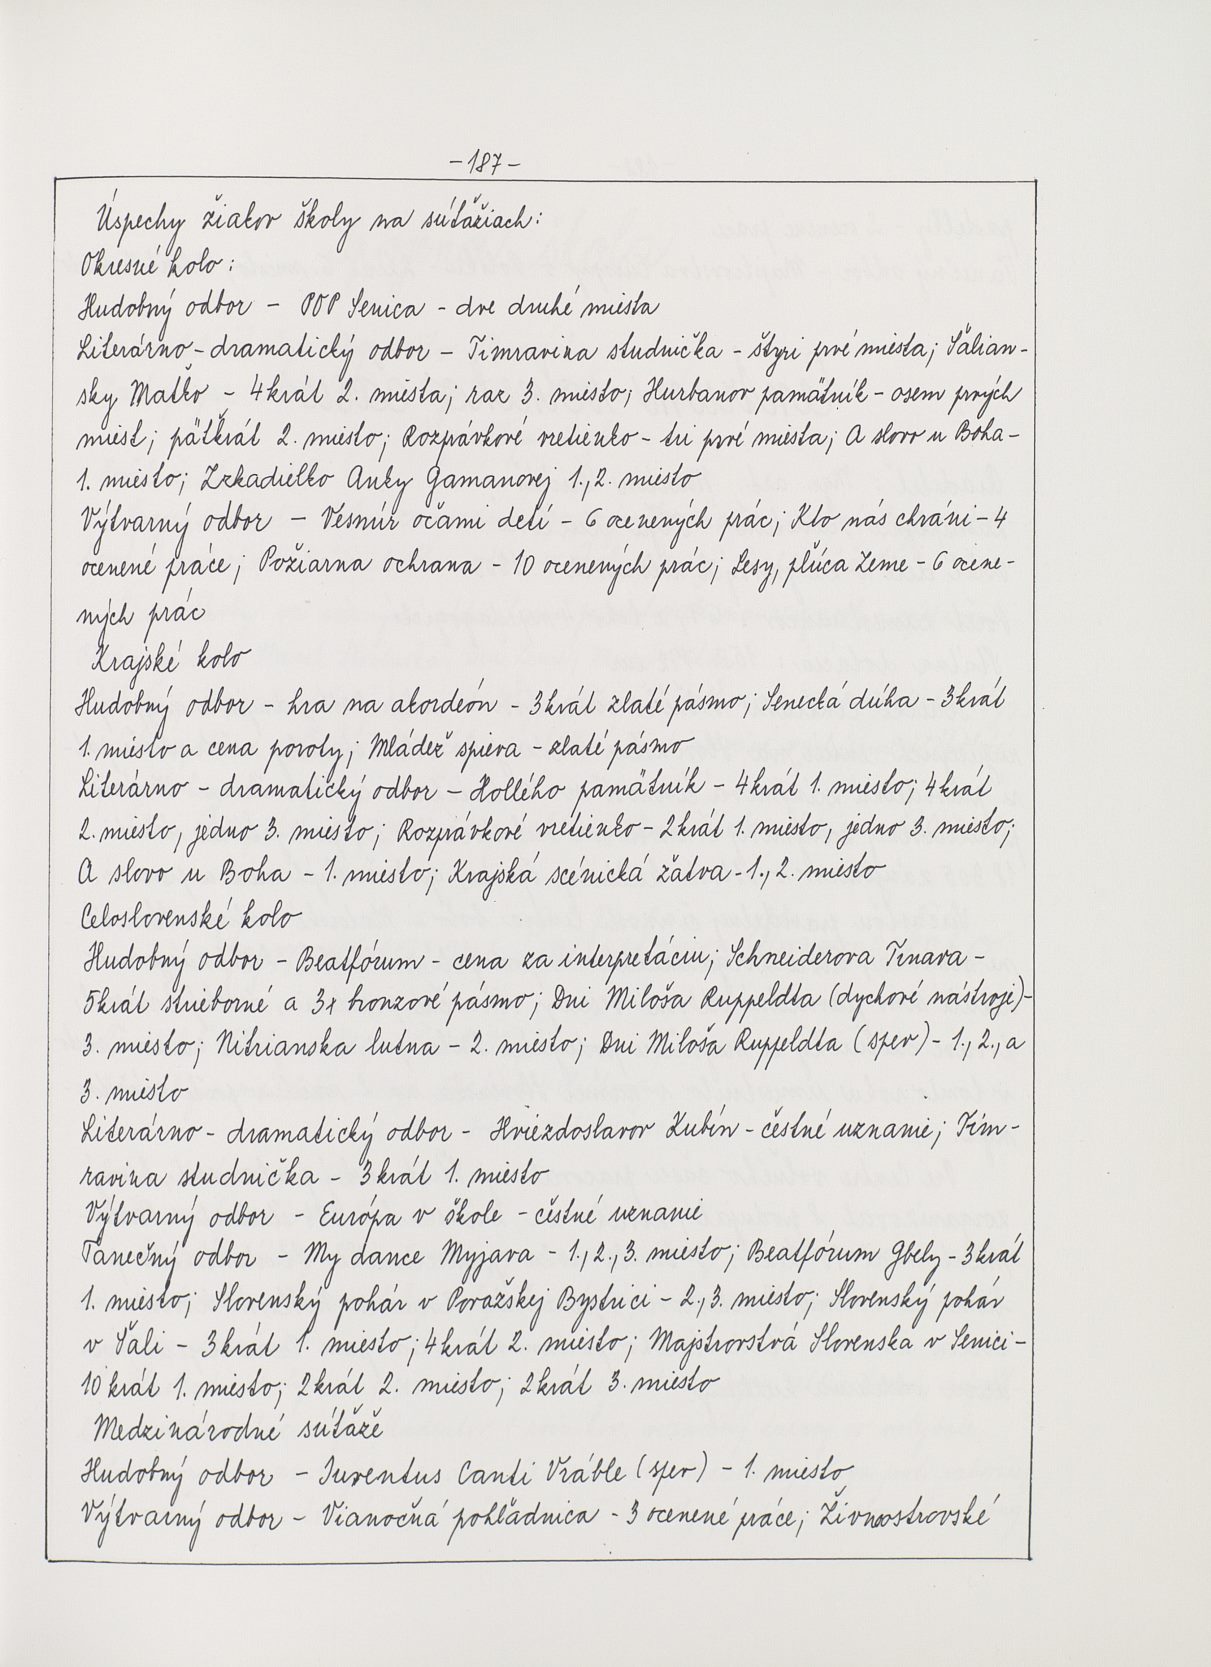 -187-
Úspechy žiakov školy na súťažiach:
Okresné kolo:
Hudobný odbor - POP Senica - dve druhé miesta
Literárno-dramatický odbor - Timravina studnička - štyri prvé miesta; Šalian-
sky Maťko - 4krát 2. miesta; raz 3. miesto; Hurbanov pamätník - osem prvých
miest; päťkrát 2. miesto; Rozprávkové vretienko - tri prvé miesta; A slovo u Boha -
1. miesto; Zrkadielko Anky Gamanovej 1., 2. miesto
Výtvarný odbor - Vesmír očami detí - 6 ocenených prác; Kto nás chráni - 4
ocenené práce; Požiarna ochrana - 10 ocenených prác; Lesy, pľúca Zeme - 6 ocene-
ných prác
Krajské kolo
Hudobný odbor - hra na akordeón - 3krát zlaté pásmo; Senecká dúha - 3krát
1. miesto a cena poroty; Mládež spieva - zlaté pásmo
Literárno - dramatický odbor - Hollého pamätník - 4krát 1. miesto; 4krát
2. miesto, jedno 3. miesto; Rozprávkové vretienko - 2krát 1. miesto, jedno 3. miesto;
A slovo u Boha - 1. miesto; Krajská scénická žatva - 1., 2. miesto
Celoslovenské kolo
Hudobný odbor - Beatfórum - cena za interpretáciu; Schneiderova Trnava -
5krát strieborné a 3x bronzové pásmo; Dni Miloša Ruppeldta (dychové nástroje) -
3. miesto; Nitrianska lutna - 2. miesto; Dni Miloša Ruppeldta (spev) - 1., 2., a
3. miesto
Literárno - dramatický odbor - Hviezdoslavov Kubín - čestné uznanie; Tim-
ravina studnička - 3krát 1. miesto
Výtvarný odbor - Európa v škole - čestné uznanie
Tanečný odbor - My dance Myjava - 1., 2., 3. miesto; Beatfórum Gbely - 3krát
1. miesto; Slovenský pohár v Považskej Bystrici - 2., 3. miesto; Slovenský pohár
v Šali - 3krát 1. miesto; 4krát 2. miesto; Majstrovstvá Slovenska v Senici -
10krát 1. miesto; 2krát 2. miesto; 2krát 3. miesto
Medzinárodné súťaže
Hudobný odbor - Iuventus Canti Vráble (spev) - 1. miesto
Výtvarný odbor - Vianočná pohľadnica - 3 ocenené práce; Živnostrovské